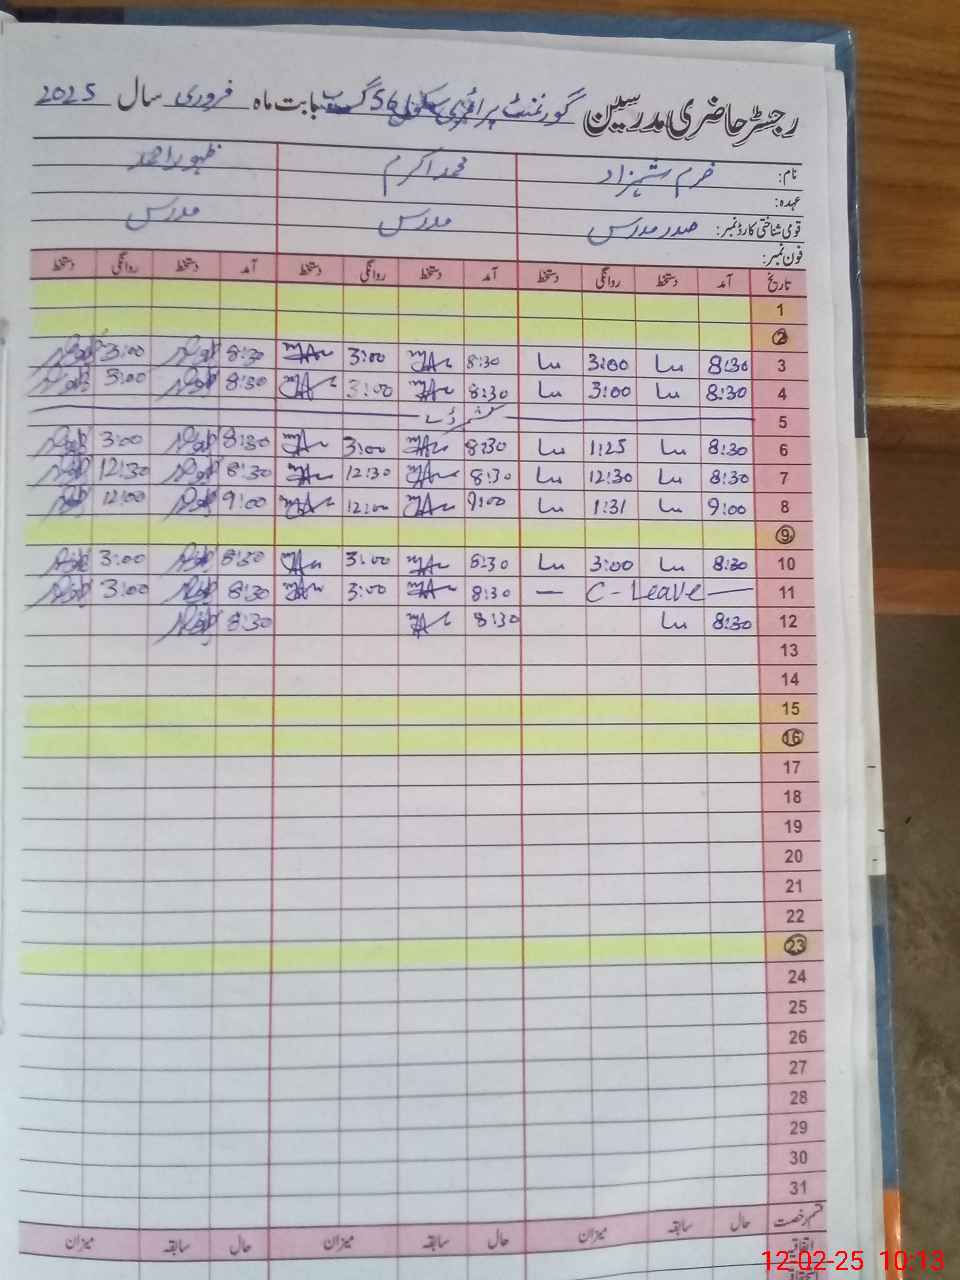 رجسٹر حاضری مدرسین گورنمنٹ پرائمری سکول 56 گ ب بابت ماہ فروری سال 2025
نام: خرم شہزاد محمد اکرم ظہور احمد
عہدہ:
قومی شناختی کارڈ نمبر: صدر مدرس مدرس مدرس
فون نمبر:
تاریخ آمد دستخط روانگی دستخط آمد دستخط روانگی دستخط آمد دستخط روانگی دستخط
1
2
3 8:30 3:00 8:30 3:00 8:30 3:00
4 8:30 3:00 8:30 3:00 8:30 3:00
5 کشمیر ڈے
6 8:30 1:25 8:30 3:00 8:30 3:00
7 8:30 12:30 8:30 12:30 8:30 12:30
8 9:00 1:31 9:00 12:00 9:00 12:00
9
10 8:30 3:00 8:30 3:00 8:30 3:00
11 C-Leave 8:30 3:00 8:30 3:00
12 8:30 8:30 8:30
13
14
15
16
17
18
19
20
21
22
23
24
25
26
27
28
29
30
31
قسم رخصت حال سابقہ میزان حال سابقہ میزان حال سابقہ میزان
اتفاقیہ
12-02-25 10:13